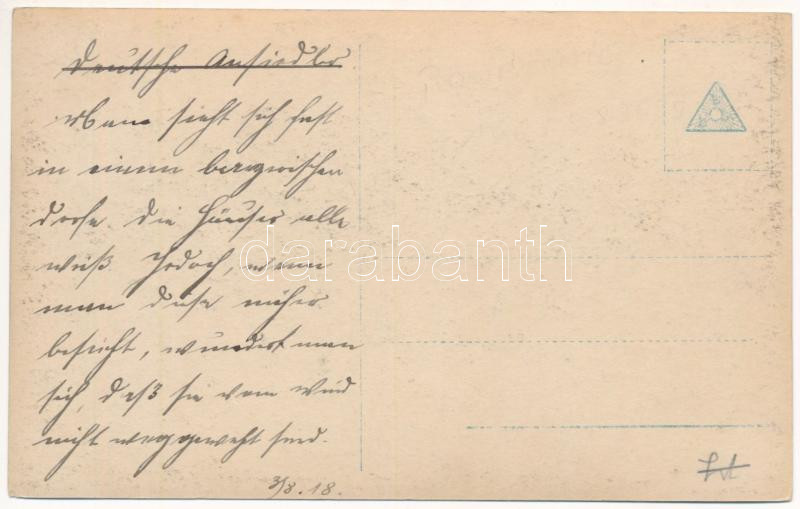 Deutsche Ansiedler
Man sieht sich fast
in einem bayrischen
dorfe. die Häuser alle
weiß Jedoch, wenn
man diese näher
besieht, wundert man
sich, daß sie vom Wind
nicht weggeweht sind.
3/8.18.
darabanth